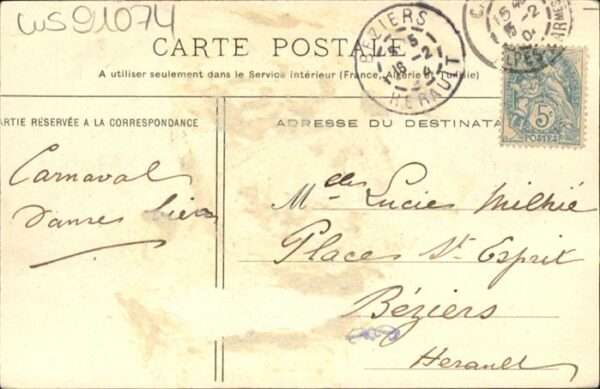 CWS91074
CARTE POSTALE
A utiliser seulement dans le Service intérieur (France, Algérie et Tunisie)
PARTIE RÉSERVÉE A LA CORRESPONDANCE
ADRESSE DU DESTINATA
BEZIERS
HERAULT
5
POSTES
Carnaval
Mlles Lucie
Place St Esprit
Béziers
Herault